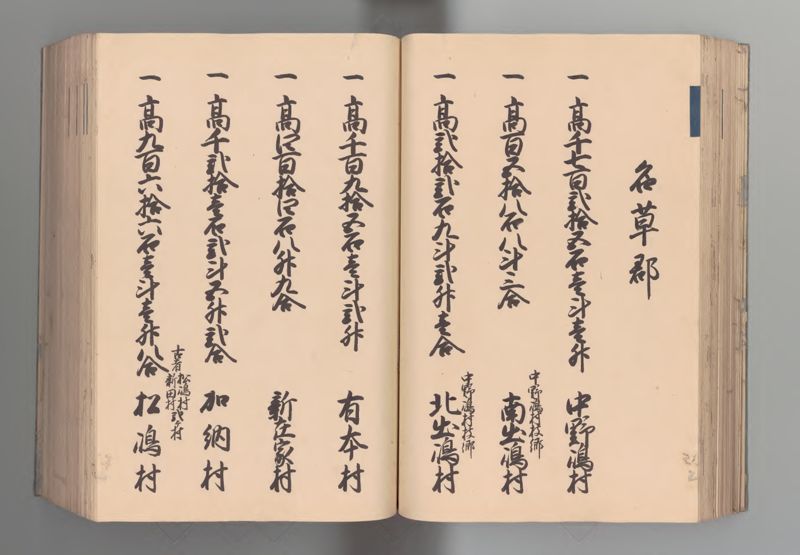 名草郡
一高千七百弐拾五石壱斗壱升
中野嶋村
一高百五拾八石八斗三合
中野嶋村枝郷
南出嶋村
一高弐拾弐石九斗弐升壱合
中野嶋村枝郷
北出嶋村
一高千百九拾五石壱斗弐升
有本村
一高四百拾四石八升九合
新在家村
一高千弐拾壱石弐斗五升弐合
加納村
一高九百六拾六石壱斗壱升八合
古者松嶋村
新田村弐ケ村
松嶋村